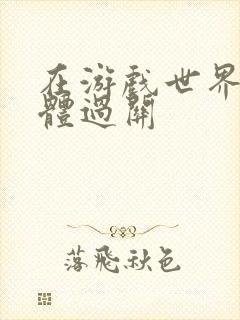 在游戏世界
體過關
落飛秋色